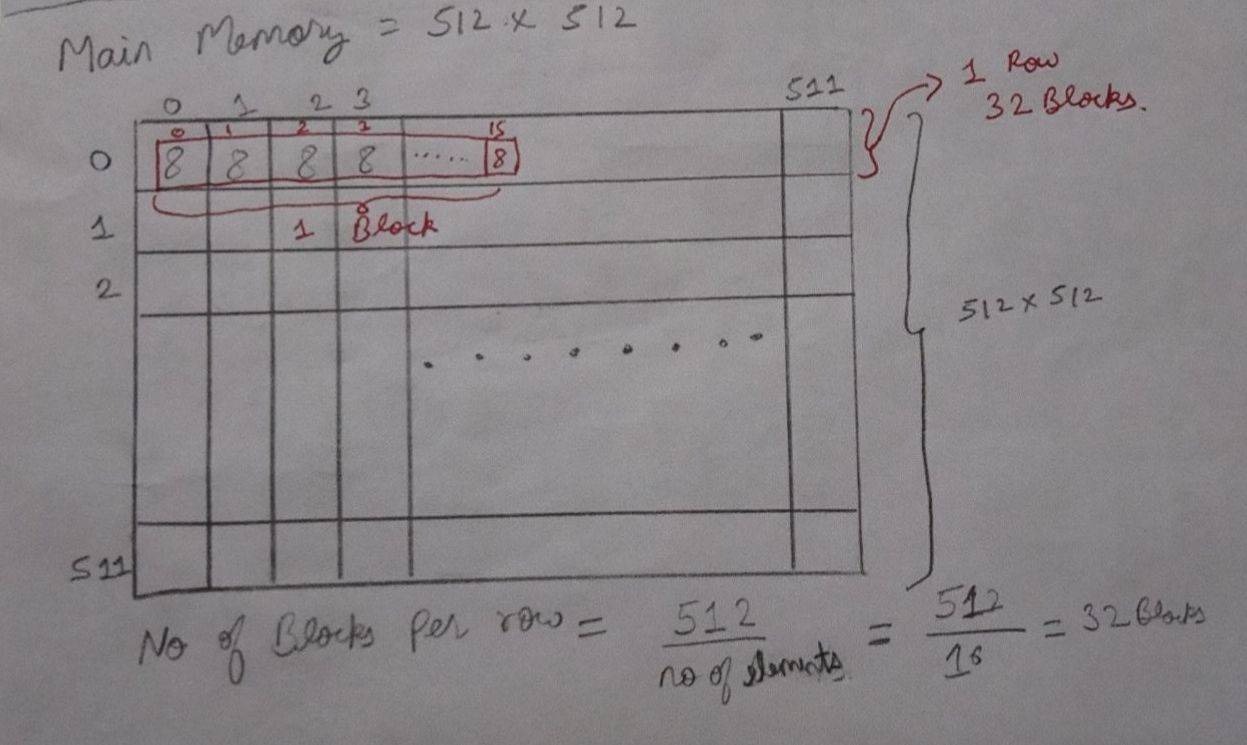 Main Memory = 512 x 512
0 1 2 3 511
1 Row
32 Blocks.
0 1 2 3 15
0 8 8 8 8 ...... 8
1 1 Block
2
512 x 512
. . . . . . . .
511
No of Blocks Per row = 512 / no of elements = 512 / 16 = 32 Blocks